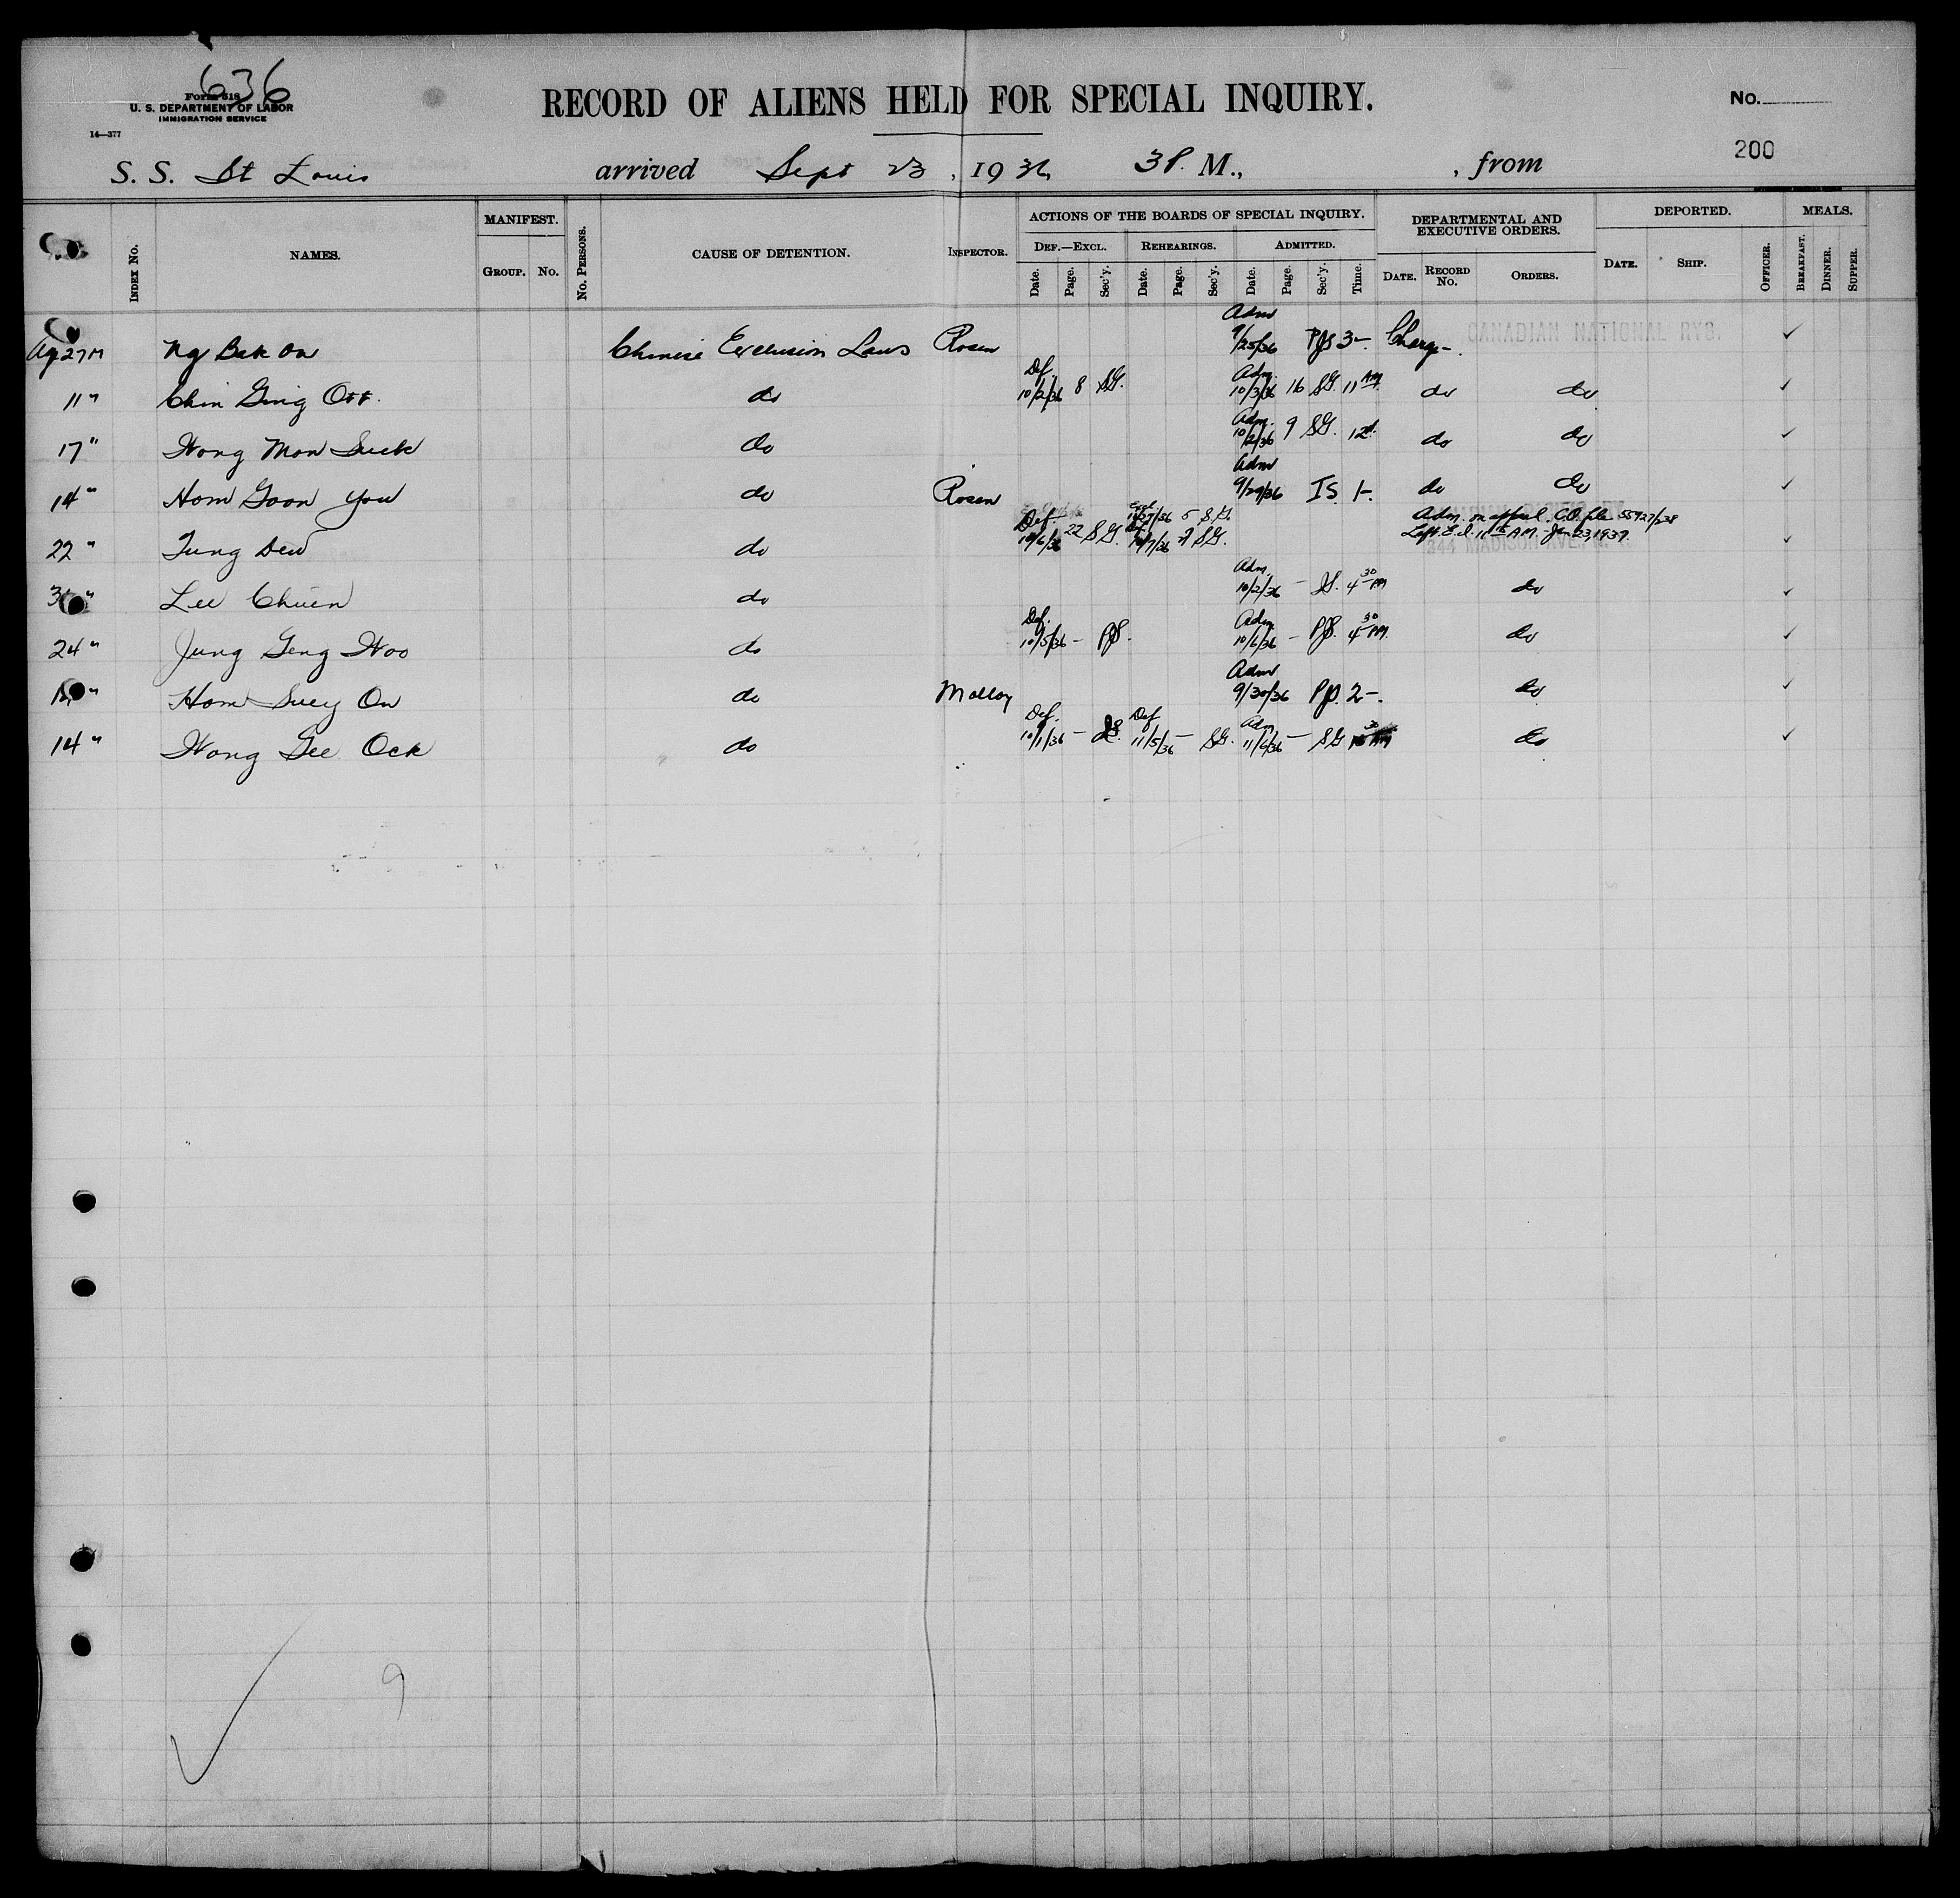 636
Form 518
U. S. DEPARTMENT OF LABOR
IMMIGRATION SERVICE
14—377
RECORD OF ALIENS HELD FOR SPECIAL INQUIRY.
No.
200
S. S. St Louis arrived Sept 23, 1936, 3 P. M., , from
INDEX NO. NAMES. MANIFEST. GROUP. NO. NO. PERSONS. CAUSE OF DETENTION. INSPECTOR. ACTIONS OF THE BOARDS OF SPECIAL INQUIRY. DEF.—EXCL. REHEARINGS. ADMITTED. DEPARTMENTAL AND EXECUTIVE ORDERS. DEPORTED. MEALS.
Date. Page. Sec'y. Date. Page. Sec'y. Date. Page. Sec'y. Time. DATE. RECORD NO. ORDERS. DATE. SHIP. OFFICER. BREAKFAST. DINNER. SUPPER.
CANADIAN NATIONAL RYS.
27 M Ng Bak On Chinese Exclusion Laws Rosen Adm 9/25/36 PJS 3— ✓
11 " Chin Ging Ott. do Def. 10/2/36 8 SG. Adm. 10/3/36 16 SG. 11 AM do do ✓
17 " Wong Mon Suck do Adm. 10/2/36 9 SG. do do ✓
14 " Hom Goon You do Rosen Adm 9/29/36 IS 1—. do do ✓
22 " Jung Dew do Def. 10/6/36 22 SG. 5 SG. SG. Adm. on appeal. C.O. file 55927/238
Left E.I. 11 AM. Jan 23, 1937.
344 MADISON AVE.
" Lee Chuen do Adm. 10/2/36 — 4 30 PM do ✓
24 " Jung Geng Woo do Def. 10/5/36 — PJS. Adm. 10/6/36 — PJS. 4 30 PM. do ✓
" Hom Suey On do Molloy Adm 9/30/36 2—. do ✓
14 " Wong Gee Ock do Def. 10/1/36 — Def 11/5/36 — SG. Adm 11/6/36 — SG do ✓
9